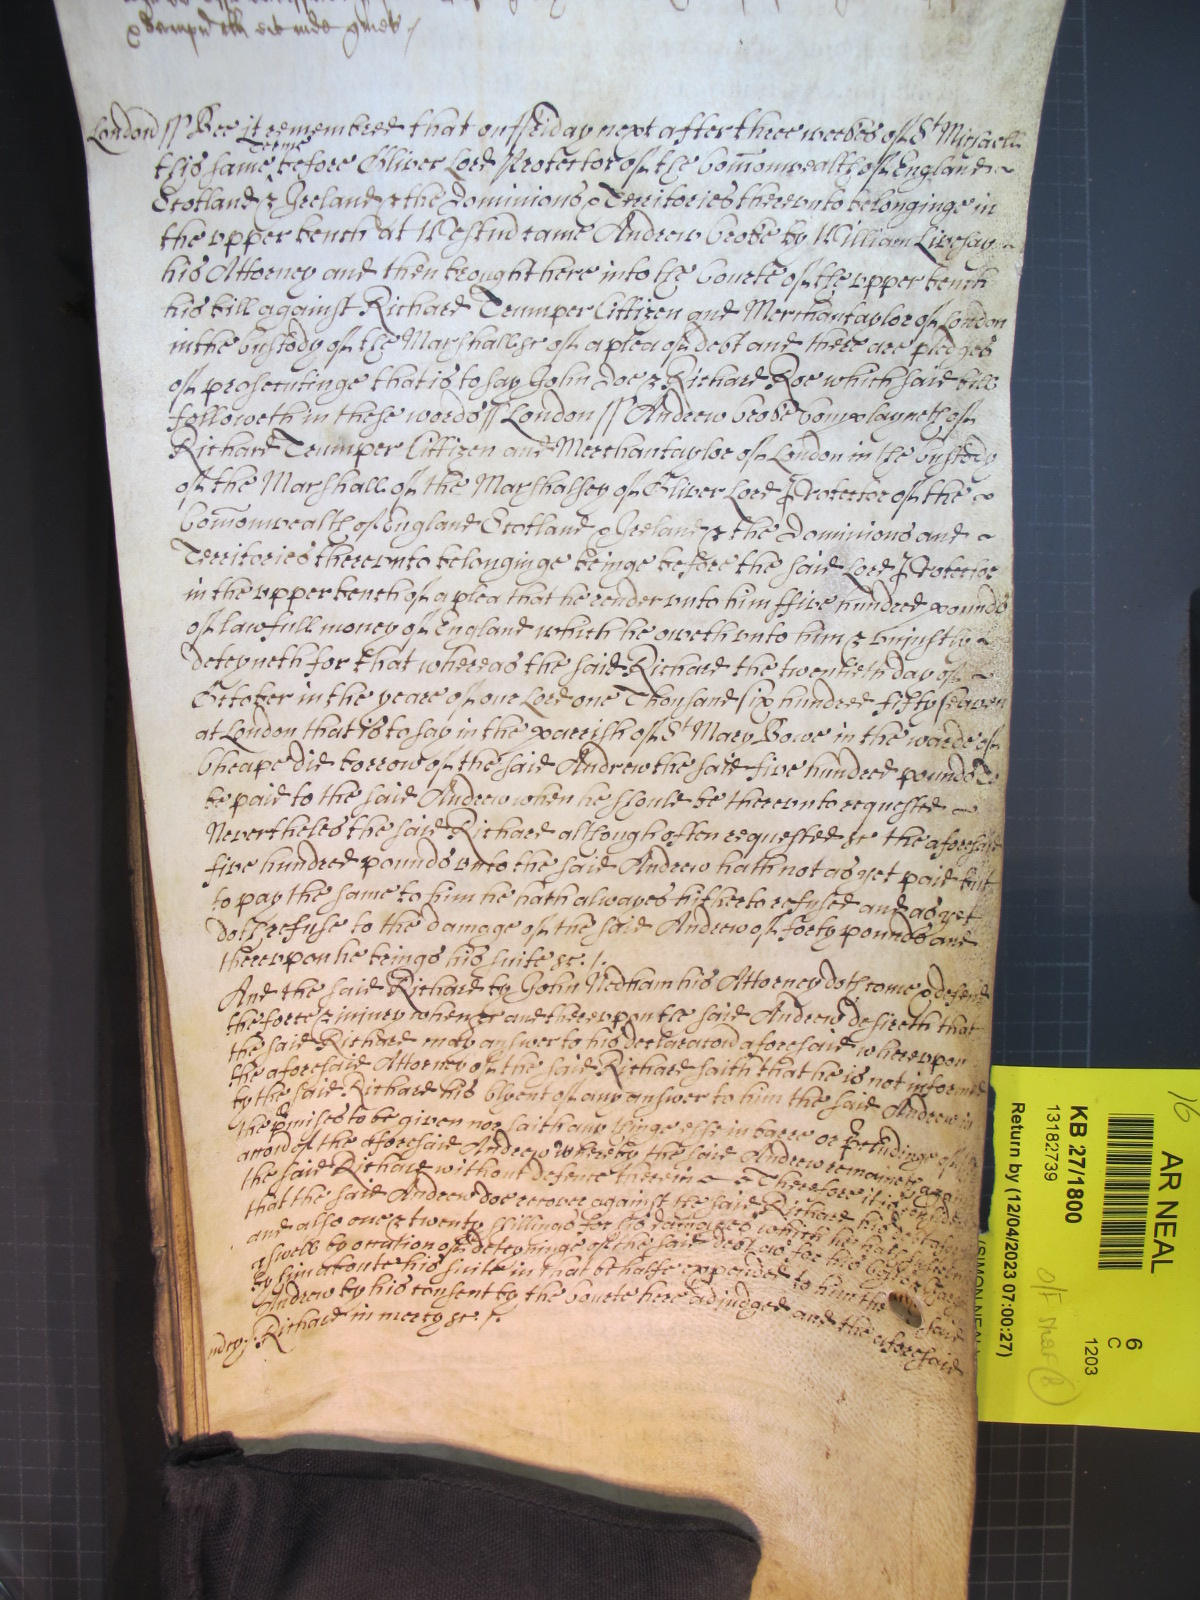 London ss Bee it remembred that on ffriday next after three weekes of St Michaell
this same Terme before Oliver Lord Protector of the Com̄onwealth of England
Scotland & Ireland & the Dominions & Territories thereunto belonginge in
the upper bench at Westm̄ came Andrew Cooke by William Livesay
his Attorney and then brought here into the Courte of the upper bench
his bill against Richard Trumper Cittizen and Merchantaylor of London
in the Custody of the Marshall &c of a plea of debt and there are pledges
of prosecutinge that is to say John Doe & Richard Roe which said bill
followeth in these words ss London ss Andrew Cooke Complayneth of
Richard Trumper Cittizen and Merchantaylor of London in the Custody
of the Marshall of the Marshalsey of Oliver Lord Protector of the
Com̄onwealth of England Scotland & Ireland & the Dominions and
Territories thereunto belonginge beinge before the said Lord Protector
in the upper bench of a plea that he render unto him ffive hundred pounds
of lawfull money of England which he oweth unto him & uniustly
deteyneth for that whereas the said Richard the twentieth day of
October in the yeare of our Lord one Thousand six hundred fifty seaven
at London that is to say in the parrish of St Mary Bowe in the warde of
Cheape did borrow of the said Andrew the said five hundred pounds To
be paid to the said Andrew when he should be thereunto requested
Neverthelesse the said Richard although often requested &c the aforesaid
five hundred pounds unto the said Andrew hath not as yet paid but
to pay the same to him he hath alwayes hitherto refused and as yet
doth refuse to the damage of the said Andrew of forty pounds and
thereupon he brings his suite &c.
And the said Richard by John Nedham his Attorney doth come & defend
the force & iniury when &c and thereupon the said Andrew desireth that
the said Richard may answer to his declarac̄on aforesaid whereupon
the aforesaid Attorney of the said Richard saith that he is not informed
by the said Richard his Clyent of any answer to him the said Andrew in
the p̄mises to be given nor saith any thinge else in barre or p̄cludinge of the
acc̄on of the aforesaid Andrew whereby the said Andrew remaineth against
the said Richard without defence therein Therefore it is Considered
that the said Andrew doe recover against the said Richard his debt aforesaid
and also one & twenty shillings for his damages which he hath susteined
aswell by occasion of deteyninge of the said debt as for his Costes & Charges
by him aboute his suite in that behalfe expended to him the said
Andrew by his consent by the Courte here adiudged and the aforesaid
Richard in mercy &c.
16
AR NEAL
6
C
1203
KB 27/1800
13182739
Return by (12/04/2023 07:00:27)
(SIMON NEAL)